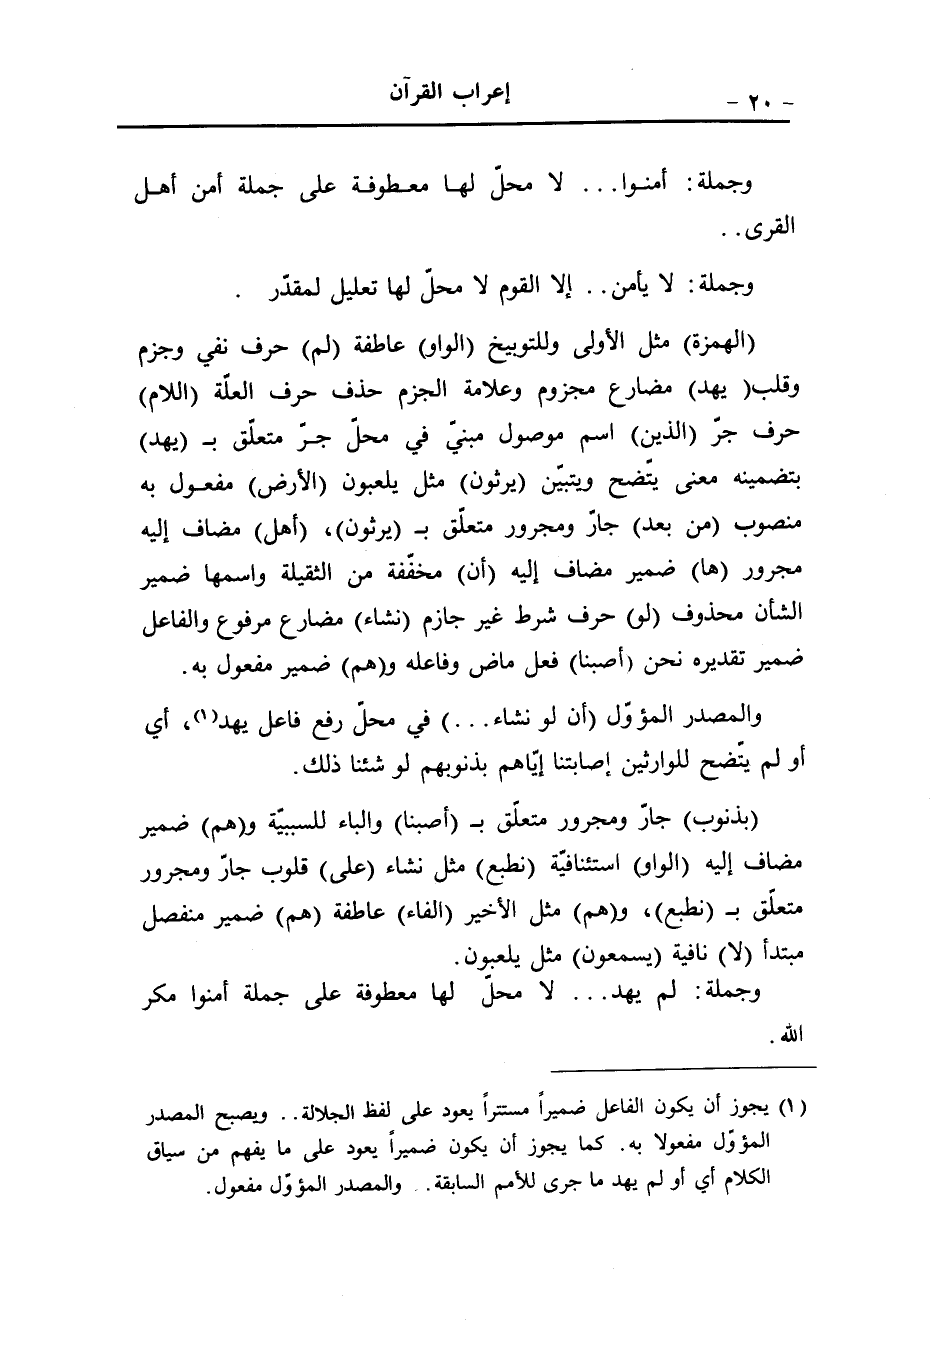 - ٢٠ -
إعراب القرآن
وجملة: أمنوا... لا محلّ لها معطوفة على جملة أمن أهل
القرى..
وجملة: لا يأمن.. إلا القوم لا محلّ لها تعليل لمقدّر .
(الهمزة) مثل الأولى وللتوبيخ (الواو) عاطفة (لم) حرف نفي وجزم
وقلب( يهد) مضارع مجزوم وعلامة الجزم حذف حرف العلّة (اللام)
حرف جرّ (الذين) اسم موصول مبنيّ في محلّ جرّ متعلّق بـ (يهد)
بتضمينه معنى يتّضح ويتبيّن (يرثون) مثل يلعبون (الأرض) مفعول به
منصوب (من بعد) جارّ ومجرور متعلّق بـ (يرثون)، (أهل) مضاف إليه
مجرور (ها) ضمير مضاف إليه (أن) مخفّفة من الثقيلة واسمها ضمير
الشأن محذوف (لو) حرف شرط غير جازم (نشاء) مضارع مرفوع والفاعل
ضمير تقديره نحن (أصبنا) فعل ماض وفاعله و(هم) ضمير مفعول به.
والمصدر المؤوّل (أن لو نشاء...) في محلّ رفع فاعل يهد(١)، أي
أو لم يتّضح للوارثين إصابتنا إيّاهم بذنوبهم لو شئنا ذلك.
(بذنوب) جارّ ومجرور متعلّق بـ (أصبنا) والباء للسببيّة و(هم) ضمير
مضاف إليه (الواو) استئنافيّة (نطبع) مثل نشاء (على) قلوب جارّ ومجرور
متعلّق بـ (نطبع)، و(هم) مثل الأخير (الفاء) عاطفة (هم) ضمير منفصل
مبتدأ (لا) نافية (يسمعون) مثل يلعبون.
وجملة: لم يهد... لا محلّ لها معطوفة على جملة أمنوا مكر
الله .
(١) يجوز أن يكون الفاعل ضميراً مستتراً يعود على لفظ الجلالة.. ويصبح المصدر
المؤوّل مفعولا به. كما يجوز أن يكون ضميراً يعود على ما يفهم من سياق
الكلام أي أو لم يهد ما جرى للأمم السابقة.. والمصدر المؤوّل مفعول.